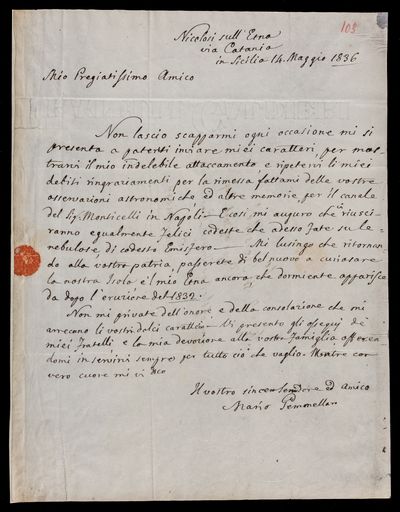 103
Nicolosi sull'Etna
via Catania
in Sicilia 14. Maggio 1836
Mio Pregiatissimo Amico
Non lascio scapparmi ogni occasione mi si
presenta a poterti inviare miei caratteri, per mos-
trarvi il mio indelebile attaccamento e ripetervi li miei
debiti ringraziamenti per la rimessa fattami delle vostre
osservazioni astronomiche, ed altre memorie, per il canale
del Sig. Monticelli in Napoli. E così mi auguro che riusci-
ranno egualmente felici codeste che adesso fate su le
nebulose, di codesto Emisfero — Mi lusingo che ritornan-
do alla vostra patria, passerete di bel nuovo a curiosare
la nostra Isola e'l mio Etna ancora che dormiente apparisce
da dopo l'eruzione del 1832.
Non mi private dell'onore, e della consolazione che mi
arrecano li vostri dolci caratteri — Vi presento gli ossequj de'
miei Fratelli e la mia devozione alla vostra Famiglia offeren-
domi in servirvi sempre per tutto ciò che vaglio. Mentre con
vero cuore mi vi dico
Il vostro sincero Servidore ed Amico
Mario Gemmellaro